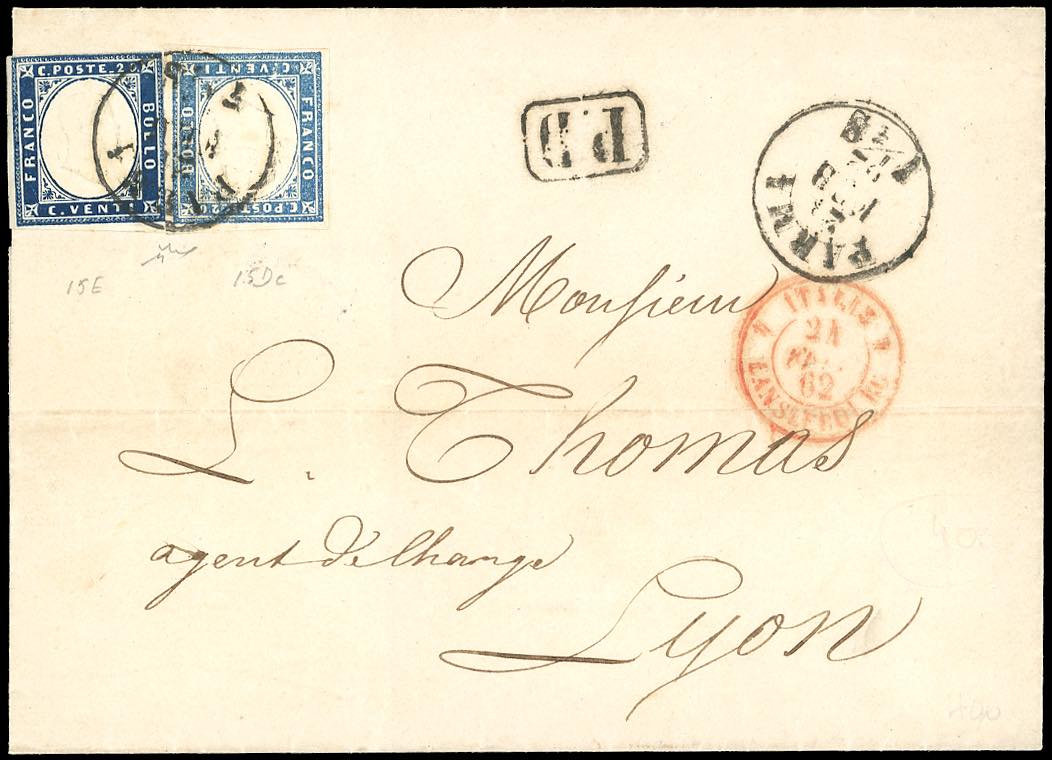 C. POSTE. 20
FRANCO
BOLLO
C. VENTI
C. VENTI
BOLLO
FRANCO
C. POSTE. 20
P.D
PARMA
15E
15Dc
ITALIE
21
FEVR.
62
LANSLEBOURG
Monsieur
L. Thomas
agent de Change
Lyon
400
400